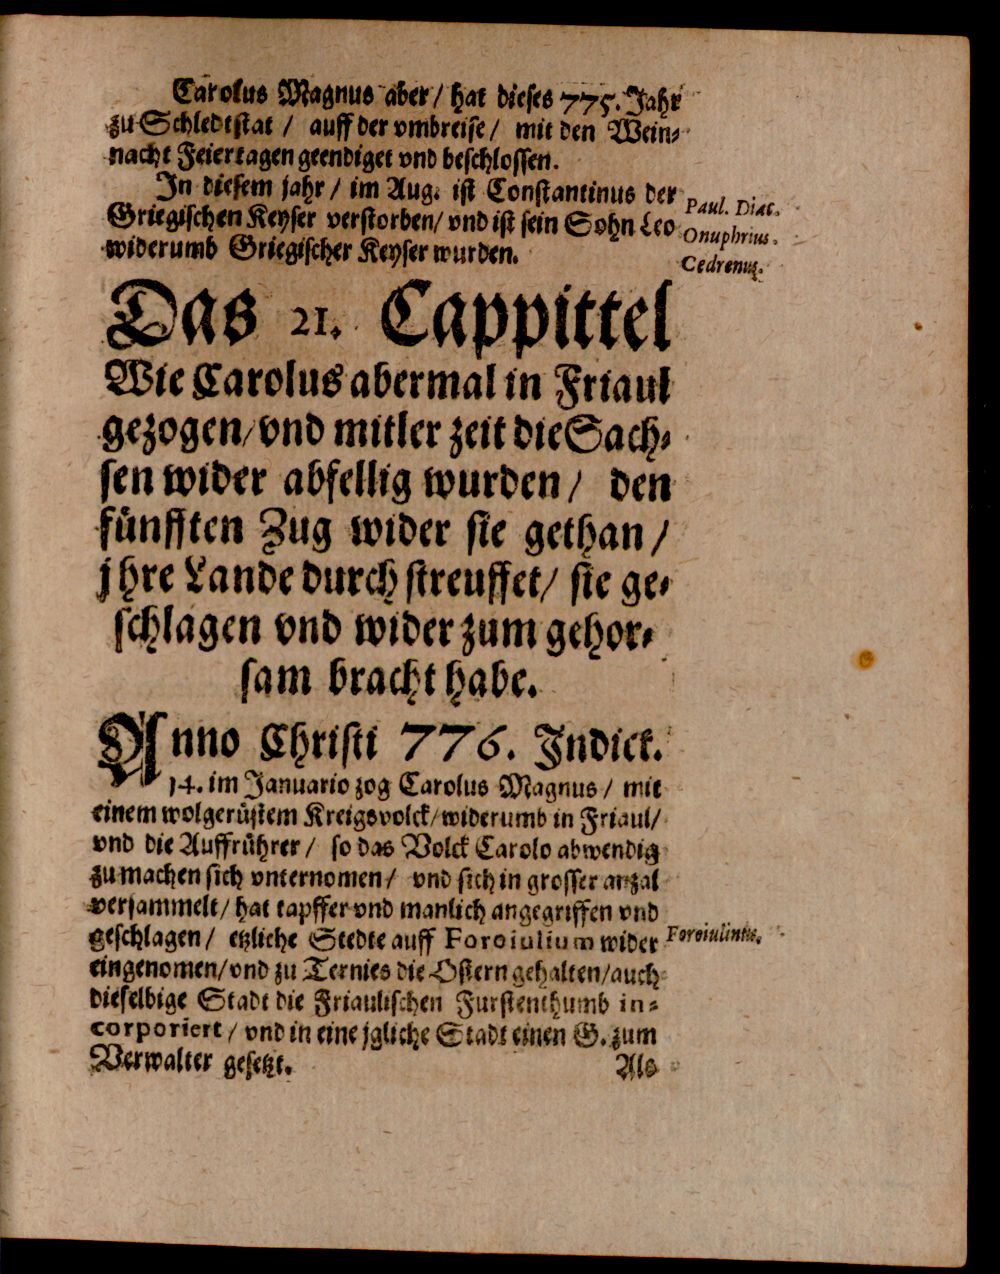 Carolus Magnus aber / hat dieses 775. Jahr
zu Schledtstat / auff der vmbreise / mit den Wein-
nacht Feiertagen geendiget vnd beschlossen.
In diesem jahr / im Aug. ist Constantinus der
Griegischen Keyser verstorben / vnd ist sein Sohn Leo
widerumb Griegischer Keyser wurden.
Paul. Diac.
Onuphrius.
Cedrenus.
Das 21. Cappittel
Wie Carolus abermal in Friaul
gezogen / vnd mitler zeit die Sach-
sen wider abfellig wurden / den
fünfften Zug wider sie gethan /
jhre Lande durch streuffet / sie ge-
schlagen vnd wider zum gehor-
sam bracht habe.
Anno Christi 776. Indick.
14. im Januario zog Carolus Magnus / mit
einem wolgerüstem Kreigsvolck / widerumb in Friaul /
vnd die Auffrührer / so das Volck Carolo abwendig
zu machen sich vnternomen / vnd sich in grosser anzal
versammelt / hat tapffer vnd manlich angegriffen vnd
geschlagen / etzliche Stedte auff Foroiulium wider
eingenomen / vnd zu Ternies die Ostern gehalten / auch
dieselbige Stadt die Friaulischen Furstenthumb in-
corporiert / vnd in eine jgliche Stadt einen G. zum
Verwalter gesetzt.
Als